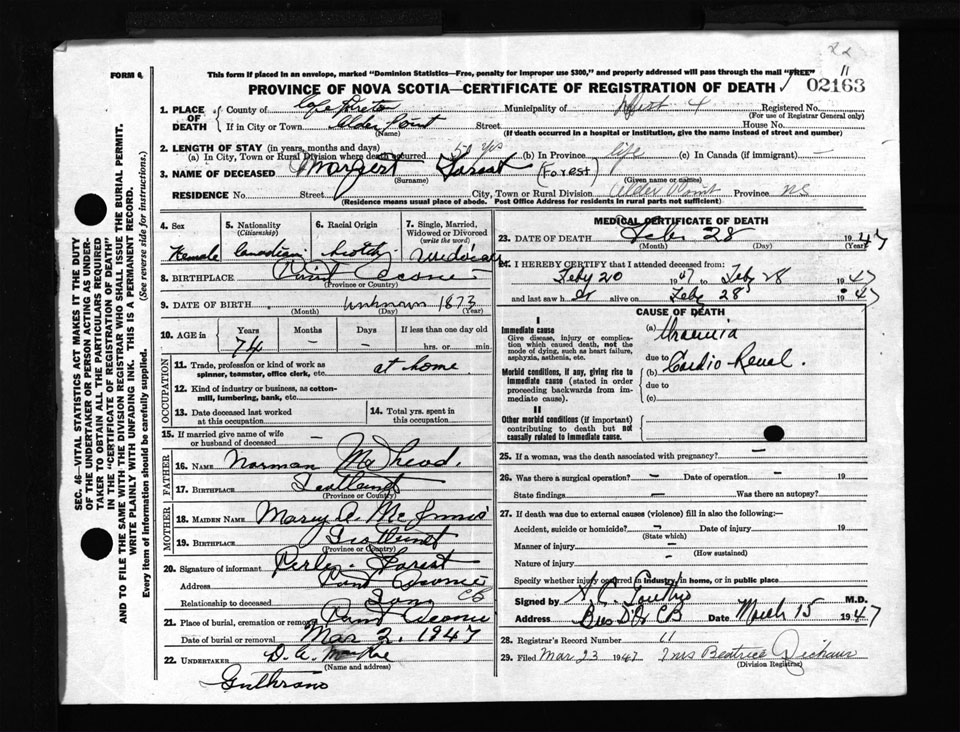 22
11
FORM 6.
This form if placed in an envelope, marked "Dominion Statistics—Free, penalty for improper use $300," and properly addressed will pass through the mail "FREE"
PROVINCE OF NOVA SCOTIA—CERTIFICATE OF REGISTRATION OF DEATH
02163
1. PLACE OF DEATH
County of Cape Breton Municipality of Registered No.
(For use of Registrar General only)
If in City or Town Alder Point Street House No.
(Name) (If death occurred in a hospital or institution, give the name instead of street and number)
2. LENGTH OF STAY (in years, months and days)
(a) In City, Town or Rural Division where death occurred 50 yrs (b) In Province life (c) In Canada (if immigrant) —
3. NAME OF DECEASED Margaret Forest (Forest)
(Surname) (Given name or names)
RESIDENCE No. Street City, Town or Rural Division Alder Point Province NS
(Residence means usual place of abode. Post Office Address for residents in rural parts not sufficient)
4. Sex
Female
5. Nationality
(Citizenship)
Canadian
6. Racial Origin
Scotch
7. Single, Married, Widowed or Divorced
(write the word)
Widow
8. BIRTHPLACE Point Aconi
(Province or Country)
9. DATE OF BIRTH unknown 1873
(Month) (Day) (Year)
10. AGE in
Years Months Days If less than one day old
74 — — hrs. or min.
OCCUPATION
11. Trade, profession or kind of work as spinner, teamster, office clerk, etc. at home
12. Kind of industry or business, as cotton-mill, lumbering, bank, etc.
13. Date deceased last worked at this occupation
14. Total yrs. spent in this occupation
15. If married give name of wife or husband of deceased —
FATHER
16. NAME Norman McLeod.
17. BIRTHPLACE Scotland
(Province or Country)
MOTHER
18. MAIDEN NAME Mary A. McInnis
19. BIRTHPLACE Scotland
(Province or Country)
20. Signature of informant Perley Forest
Address Point Aconi CB
Relationship to deceased Son
21. Place of burial, cremation or removal Point Aconi
Date of burial or removal Mar 2, 1947
22. UNDERTAKER D. A. MacRae
(Name and address)
MEDICAL CERTIFICATE OF DEATH
23. DATE OF DEATH Feb 28 1947
(Month) (Day) (Year)
24. I HEREBY CERTIFY that I attended deceased from:
Feby 20 1947 to Feby 28 1947
and last saw her alive on Feby 28 1947
CAUSE OF DEATH
I
Immediate cause
Give disease, injury or complication which caused death, not the mode of dying, such as heart failure, asphyxia, asthenia, etc.
(a) Uraemia
due to
Morbid conditions, if any, giving rise to immediate cause (stated in order proceeding backwards from immediate cause).
(b) Cardio Renal.
due to
(c)
II
Other morbid conditions (if important) contributing to death but not causally related to immediate cause.
25. If a woman, was the death associated with pregnancy? —
26. Was there a surgical operation? — Date of operation — 19
State findings — Was there an autopsy?
27. If death was due to external causes (violence) fill in also the following:—
Accident, suicide or homicide? — Date of injury 19
(State which)
Manner of injury —
(How sustained)
Nature of injury —
Specify whether injury occurred in industry, in home, or in public place
Signed by M.D.
Address Bras D'Or CB Date March 15 1947
28. Registrar's Record Number 11
29. Filed Mar 23 1947 Mrs Beatrice
(Division Registrar)
SEC. 46—VITAL STATISTICS ACT MAKES IT THE DUTY
OF THE UNDERTAKER OR PERSON ACTING AS UNDER-
TAKER TO OBTAIN ALL THE PARTICULARS REQUIRED
IN THE "CERTIFICATE OF REGISTRATION OF DEATH"
AND TO FILE THE SAME WITH THE DIVISION REGISTRAR WHO SHALL ISSUE THE BURIAL PERMIT.
WRITE PLAINLY WITH UNFADING INK. THIS IS A PERMANENT RECORD.
Every item of information should be carefully supplied. (See reverse side for instructions.)